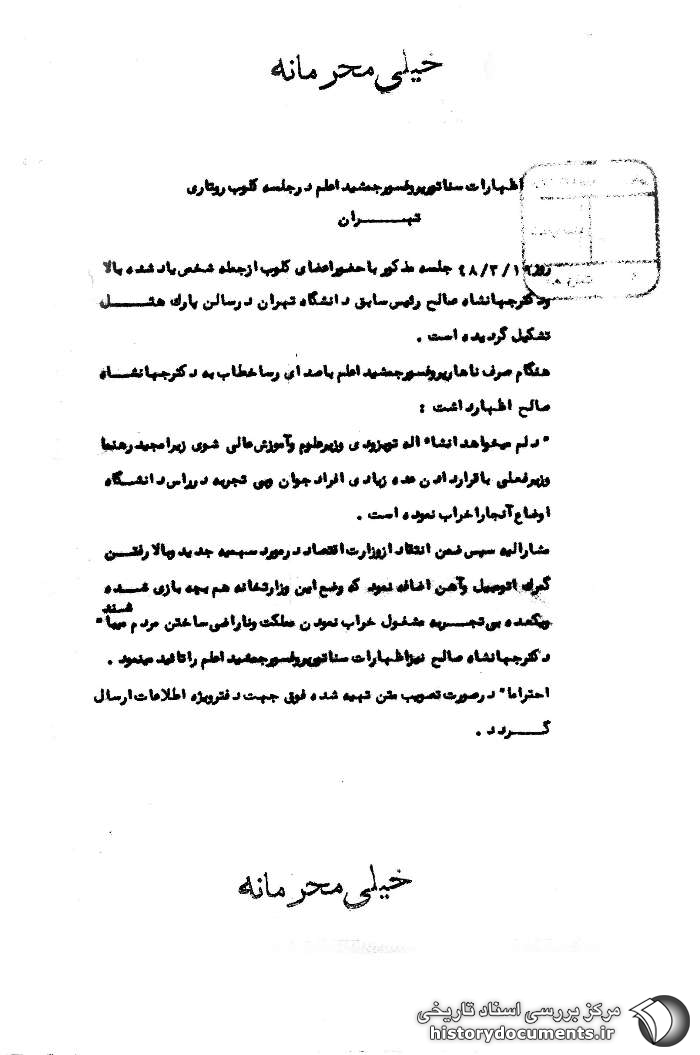 خیلی محرمانه
اظهارات سناتور پروفسور جمشید اعلم در جلسه کلوپ روتاری
تهـــران
روز ۴۸/۳/۱۹ جلسه مذکور با حضور اعضای کلوپ از جمله شخص یاد شده بالا
و دکتر جهانشاه صالح رئیس سابق دانشگاه تهران در سالن پارک هتــل
تشکیل گردیده است .
هنگام صرف ناهار پروفسور جمشید اعلم با صدای رسا خطاب به دکتر جهانشـاه
صالح اظهار داشت :
" دلم میخواهد انشاء اله تو بزودی وزیر علوم و آموزش عالی شوی زیرا مجید رهنما
وزیر فعلی با قرار دادن عده زیادی افراد جوان و بی تجربه در راس دانشگاه
اوضاع آنجا را خراب نموده است .
مشارالیه سپس ضمن انتقاد از وزارت اقتصاد در مورد سهمیه جدید و بالا رفتـن
گمرک اتومبیل و آهن اضافه نمود که وضع این وزارتخانه هم بچه بازی شـده
ویکعده بی تجـربه مشغول خراب نمودن مملکت و ناراضی ساختن مردم میباشند "
دکتر جهانشاه صالح نیز اظهارات سناتور پروفسور جمشید اعلم را تائید مینمود .
احتراما" در صورت تصویب متن تهیه شده فوق جهت دفتر ویژه اطلاعات ارسال
گـــردد .
خیلی محرمانه
مرکز بررسی اسناد تاریخی
historydocuments.ir